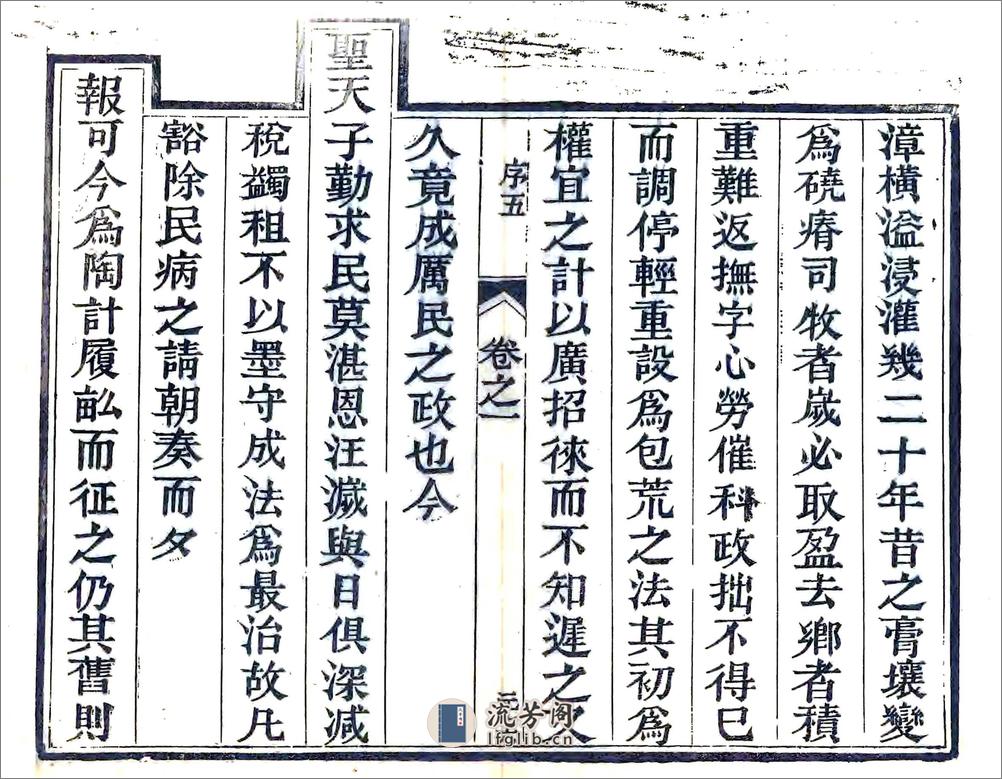 漳橫溢浸灌幾二十年昔之膏壤變
爲磽瘠司牧者嵗必取盈去鄉者積
重難返撫字心勞催科政拙不得巳
而調停輕重設爲包荒之法其初爲
權宜之計以廣招徠而不知遲之又
序五
卷之一
流芳阁
lfglib.cn
久竟成厲民之政也今
聖天子勤求民莫湛恩汪濊與日俱深減
稅蠲租不以墨守成法爲最治故凡
豁除民病之請朝奏而夕
報可今爲陶計履畝而征之仍其舊則